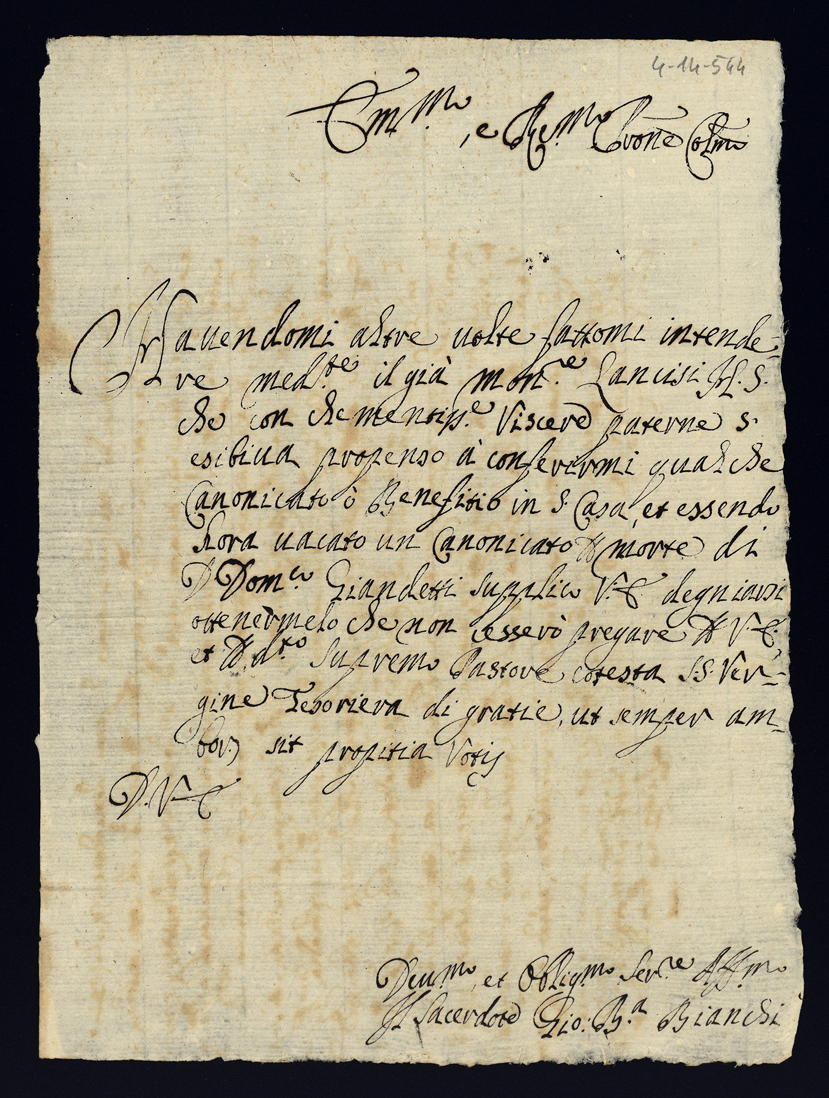 4-14-544
Em.mo
, e Re.mo Prone Colmo
Havendomi altre uolte fattomi intende=
re med.te il già Mon.re Lancisi N. S.
che con clementiss.e Viscere paterne s'
esibiua propenso à conferirmi qualche
Canonicato ò Benefitio in S. Casa, et essendo
hora uacato un Canonicato morte di
D Dom.co Giandetti supplico V. E. degniarsi
ottenermelo che non cesserò pregare V. E.
et d.to supremo Pastore cotesta SS. Ver=
gine Tesoriera di gratie, ut semper am=
bor) sit propitia Votis
D. V. E.
Deu.mo et Oblig.mo Ser.re Aff.mo
Il Sacerdote Gio: B.a Bianchi